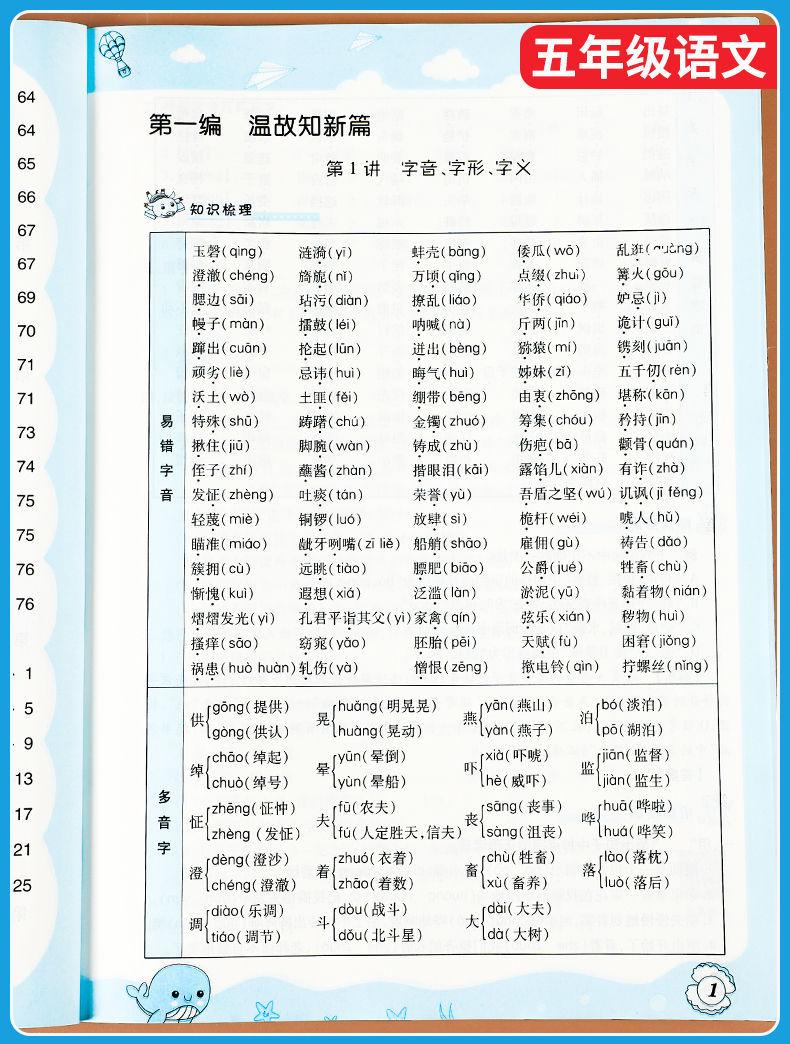 五年级语文
64
64
65
66
67
67
69
70
71
71
73
74
75
75
76
76
1
5
9
13
17
21
25
第一编 温故知新篇
第1讲 字音、字形、字义
知识梳理
易错字音
玉磬(qìng) 涟漪(yī) 蚌壳(bàng) 倭瓜(wō) 乱逛(guàng)
澄澈(chéng) 旖旎(nǐ) 万顷(qǐng) 点缀(zhuì) 篝火(gōu)
腮边(sāi) 玷污(diàn) 撩乱(liáo) 华侨(qiáo) 妒忌(jì)
幔子(màn) 擂鼓(léi) 呐喊(nà) 斤两(jīn) 诡计(guǐ)
蹿出(cuān) 抡起(lūn) 迸出(bèng) 猕猿(mí) 镌刻(juān)
顽劣(liè) 忌讳(huì) 晦气(huì) 姊妹(zǐ) 五千仞(rèn)
沃土(wò) 土匪(fěi) 绷带(bēng) 由衷(zhōng) 堪称(kān)
特殊(shū) 踌躇(chú) 金镯(zhuó) 筹集(chóu) 矜持(jīn)
揪住(jiū) 脚腕(wàn) 铸成(zhù) 伤疤(bā) 颧骨(quán)
侄子(zhí) 蘸酱(zhàn) 揩眼泪(kāi) 露馅儿(xiàn) 有诈(zhà)
发怔(zhèng) 吐痰(tán) 荣誉(yù) 吾盾之坚(wú) 讥讽(jī fěng)
轻蔑(miè) 铜锣(luó) 放肆(sì) 桅杆(wéi) 唬人(hǔ)
瞄准(miáo) 龇牙咧嘴(zī liě) 船艄(shāo) 雇佣(gù) 祷告(dǎo)
簇拥(cù) 远眺(tiào) 膘肥(biāo) 公爵(jué) 牲畜(chù)
惭愧(kuì) 遐想(xiá) 泛滥(làn) 淤泥(yū) 黏着物(nián)
熠熠发光(yì) 孔君平诣其父(yì) 家禽(qín) 弦乐(xián) 秽物(huì)
搔痒(sāo) 窈窕(yǎo) 胚胎(pēi) 天赋(fù) 困窘(jiǒng)
祸患(huò huàn) 轧伤(yà) 憎恨(zēng) 揿电铃(qìn) 拧螺丝(nǐng)
多音字
供{gōng(提供) 晃{huǎng(明晃晃) 燕{yān(燕山) 泊{bó(淡泊)
gòng(供认) huàng(晃动) yàn(燕子) pō(湖泊)
绰{chāo(绰起) 晕{yūn(晕倒) 吓{xià(吓唬) 监{jiān(监督)
chuò(绰号) yùn(晕船) hè(威吓) jiàn(监生)
怔{zhēng(怔忡) 夫{fū(农夫) 丧{sāng(丧事) 哗{huā(哗啦)
zhèng (发怔) fú(人定胜天,信夫) sàng(沮丧) huá(哗笑)
澄{dèng(澄沙) 着{zhuó(衣着) 畜{chù(牲畜) 落{lào(落枕)
chéng(澄澈) zhāo(着数) xù(畜养) luò(落后)
调{diào(乐调) 斗{dòu(战斗) 大{dài(大夫)
tiáo(调节) dǒu(北斗星) dà(大树)
1